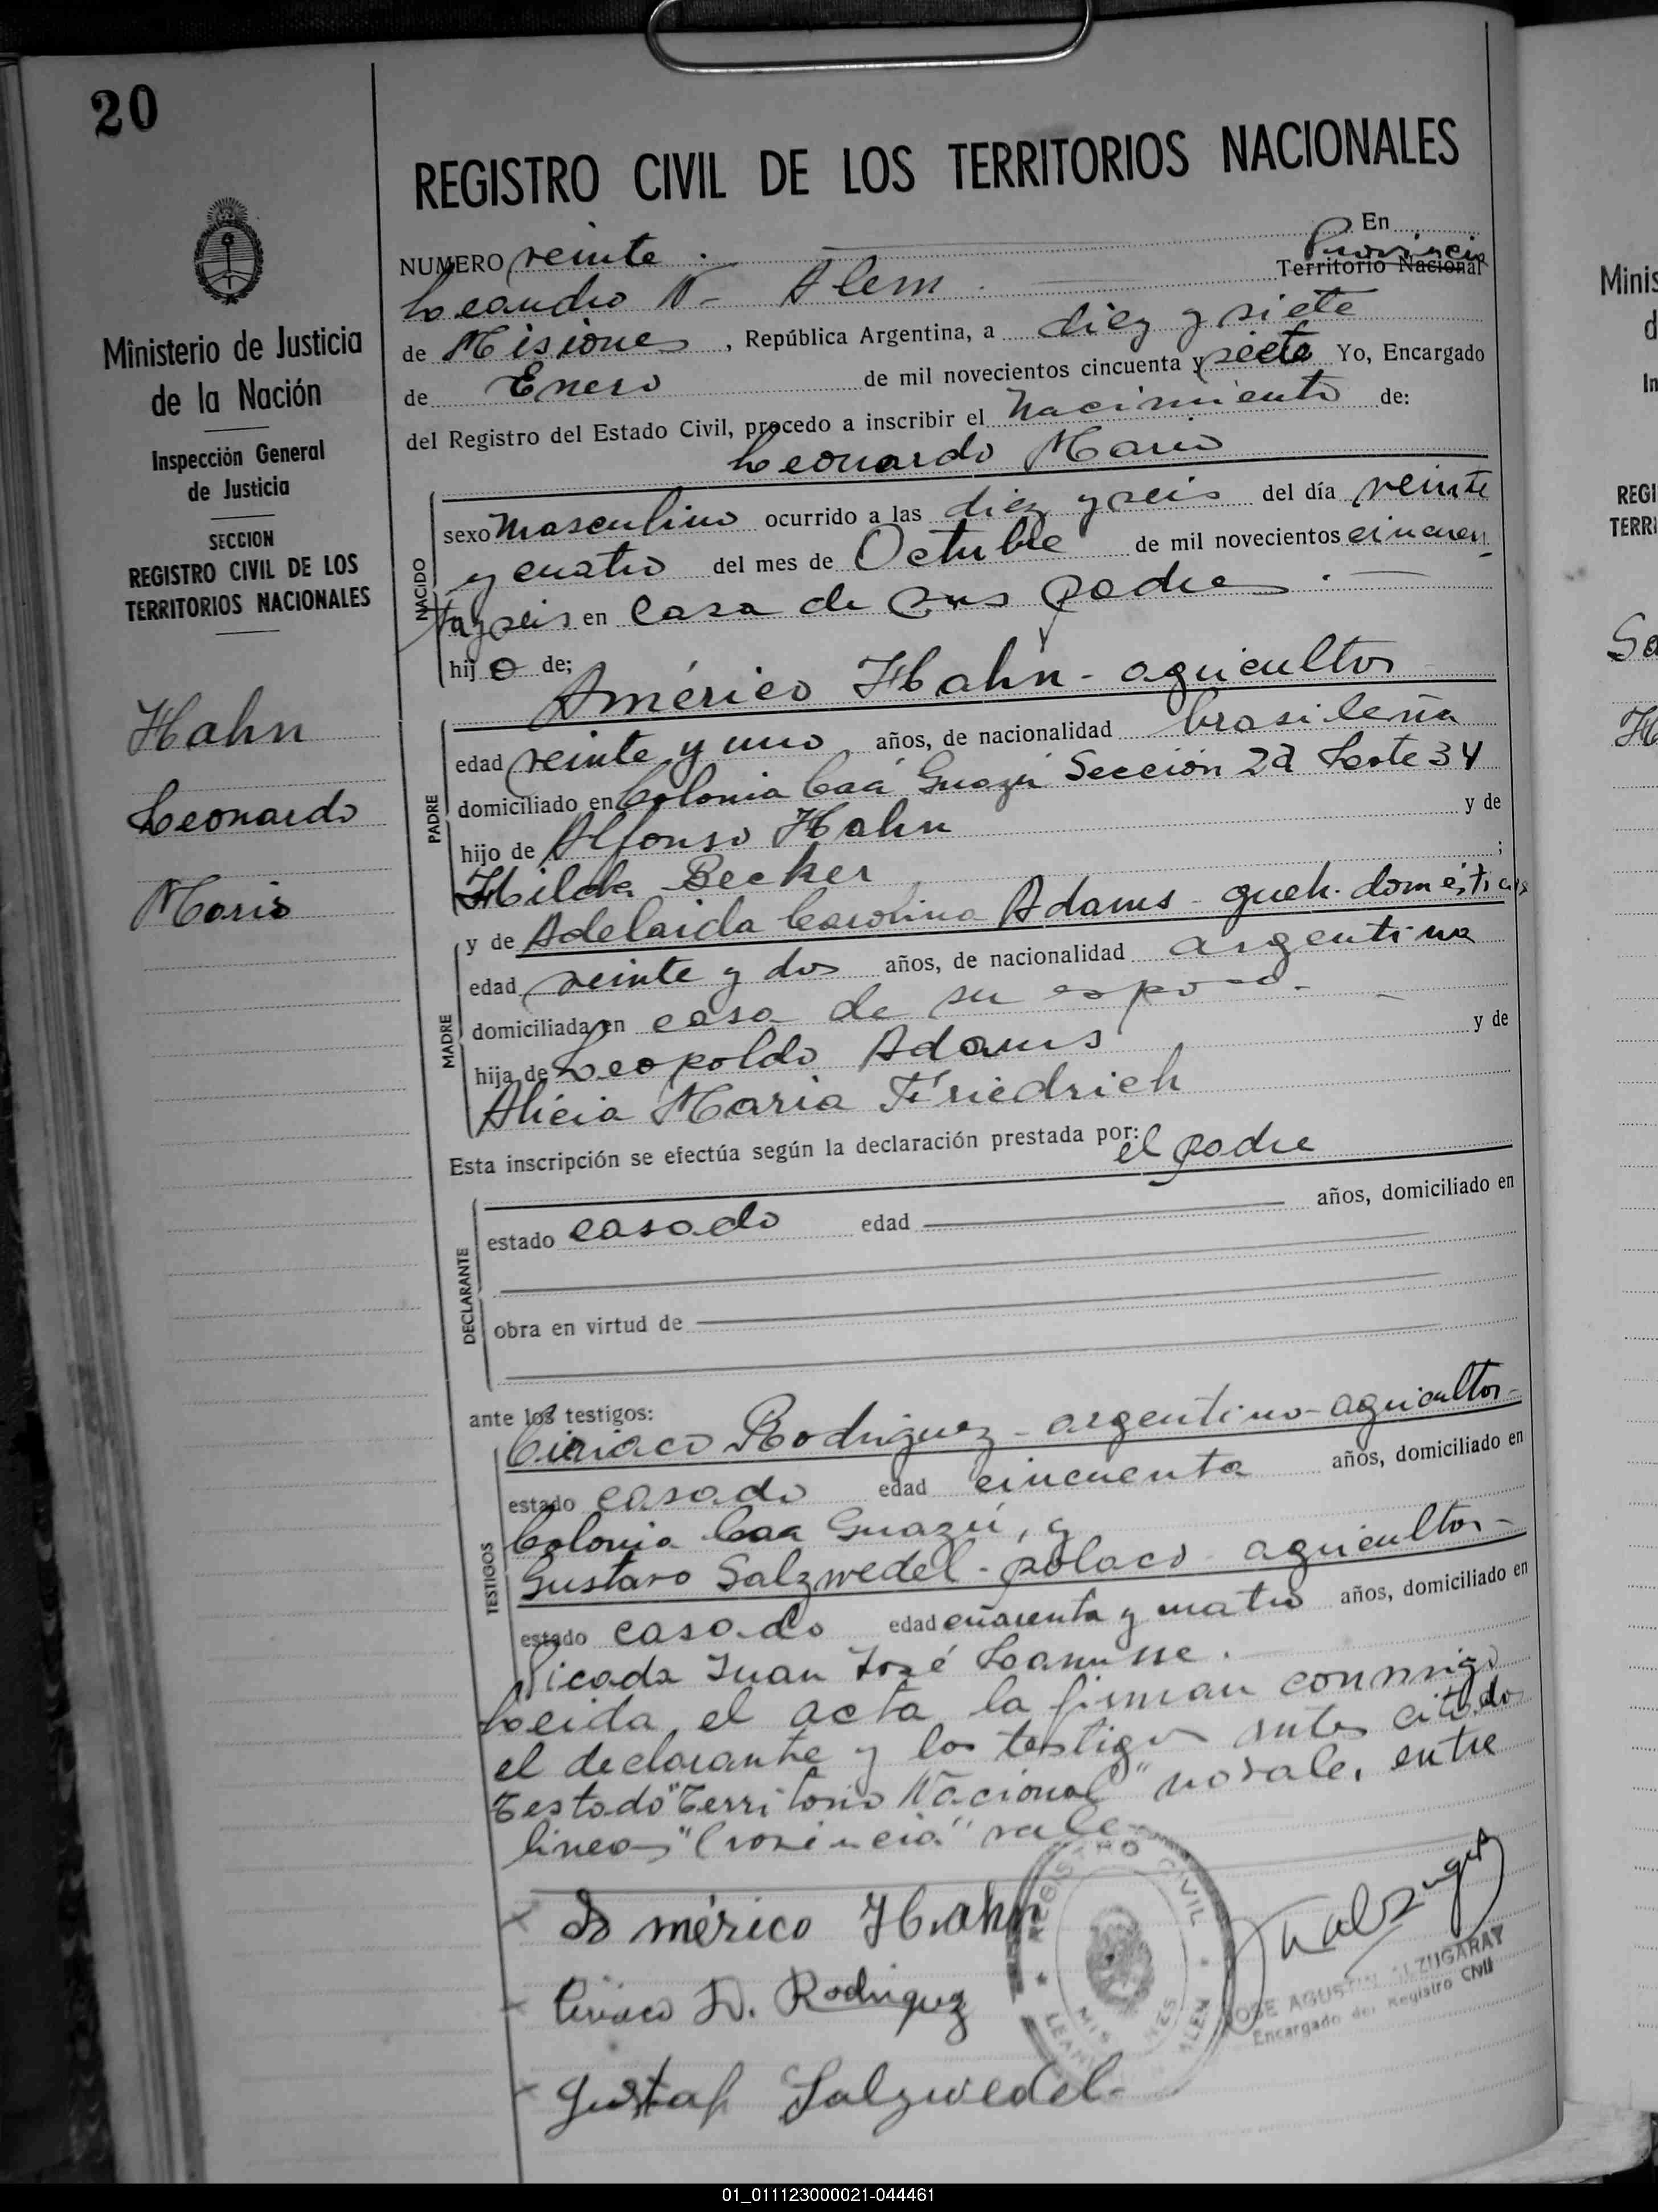 20
REGISTRO CIVIL DE LOS TERRITORIOS NACIONALES
Ministerio de Justicia
de la Nación
Inspección General
de Justicia
SECCION
REGISTRO CIVIL DE LOS
TERRITORIOS NACIONALES
Hahn
Leonardo
Mario
NUMERO veinte . En
Provincia
Leandro N- Alem Territorio Nacional
de Misiones, República Argentina, a diez y siete
de Enero de mil novecientos cincuenta y siete Yo, Encargado
del Registro del Estado Civil, procedo a inscribir el Nacimiento de:
Leonardo Mario
NACIDO
sexo masculino ocurrido a las diez y seis del día veinte
y cuatro del mes de Octubre de mil novecientos cincuen
ta y seis en Casa de sus padres.
hijo de;
Américo Hahn - agricultor
PADRE
edad veinte y uno años, de nacionalidad brasileña
domiciliado en Colonia Caá Guazú Sección 2a Lote 34
hijo de Alfonso Hahn y de
Hilda Becker ;
y de Adelaida Carolina Adams - queh. domésticos
MADRE
edad veinte y dos años, de nacionalidad argentina
domiciliada en casa de su esposo.
hija de Leopoldo Adams y de
Alicia Maria Friedrich
Esta inscripción se efectúa según la declaración prestada por: el padre
DECLARANTE
estado casado edad años, domiciliado en
obra en virtud de
ante los testigos:
Ciriaco Rodriguez - argentino - agricultor-
TESTIGOS
estado casado edad cincuenta años, domiciliado en
Colonia Caa Guazú, y
Gustavo Salzwedel - polaco - agricultor-
estado casado edad cuarenta y cuatro años, domiciliado en
Picada Juan José Lanusse.
Leida el acta la firman conmigo
el declarante y los testigos antes citados
Testado "Territorio Nacional" no vale, entre
lineas "Provincia" vale
Américo Hahn
Ciriaco D. Rodriguez
Gustaf Salzwedel
REGISTRO CIVIL
LEANDRO ALEM
JOSE AGUSTIN ALZUGARAY
Encargado del Registro Civil
Minis
d
In
REGI
TERRI
01_011123000021-044461